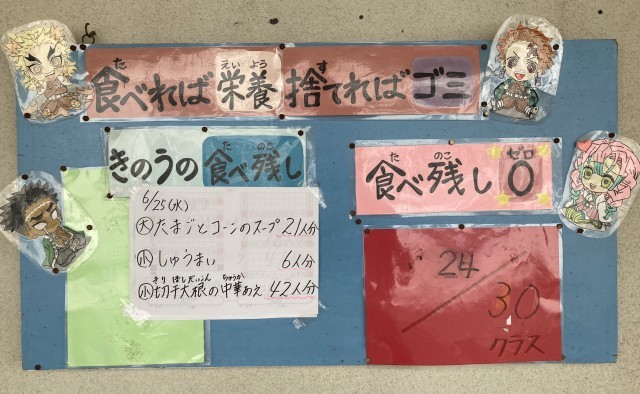 食べれば栄養 捨てればゴミ
きのうの食べ残し
6/25(水)
大 たまごとコーンのスープ 21人分
小 しゅうまい 6人分
小 切干大根の中華あえ 42人分
食べ残し0
24/30
クラス